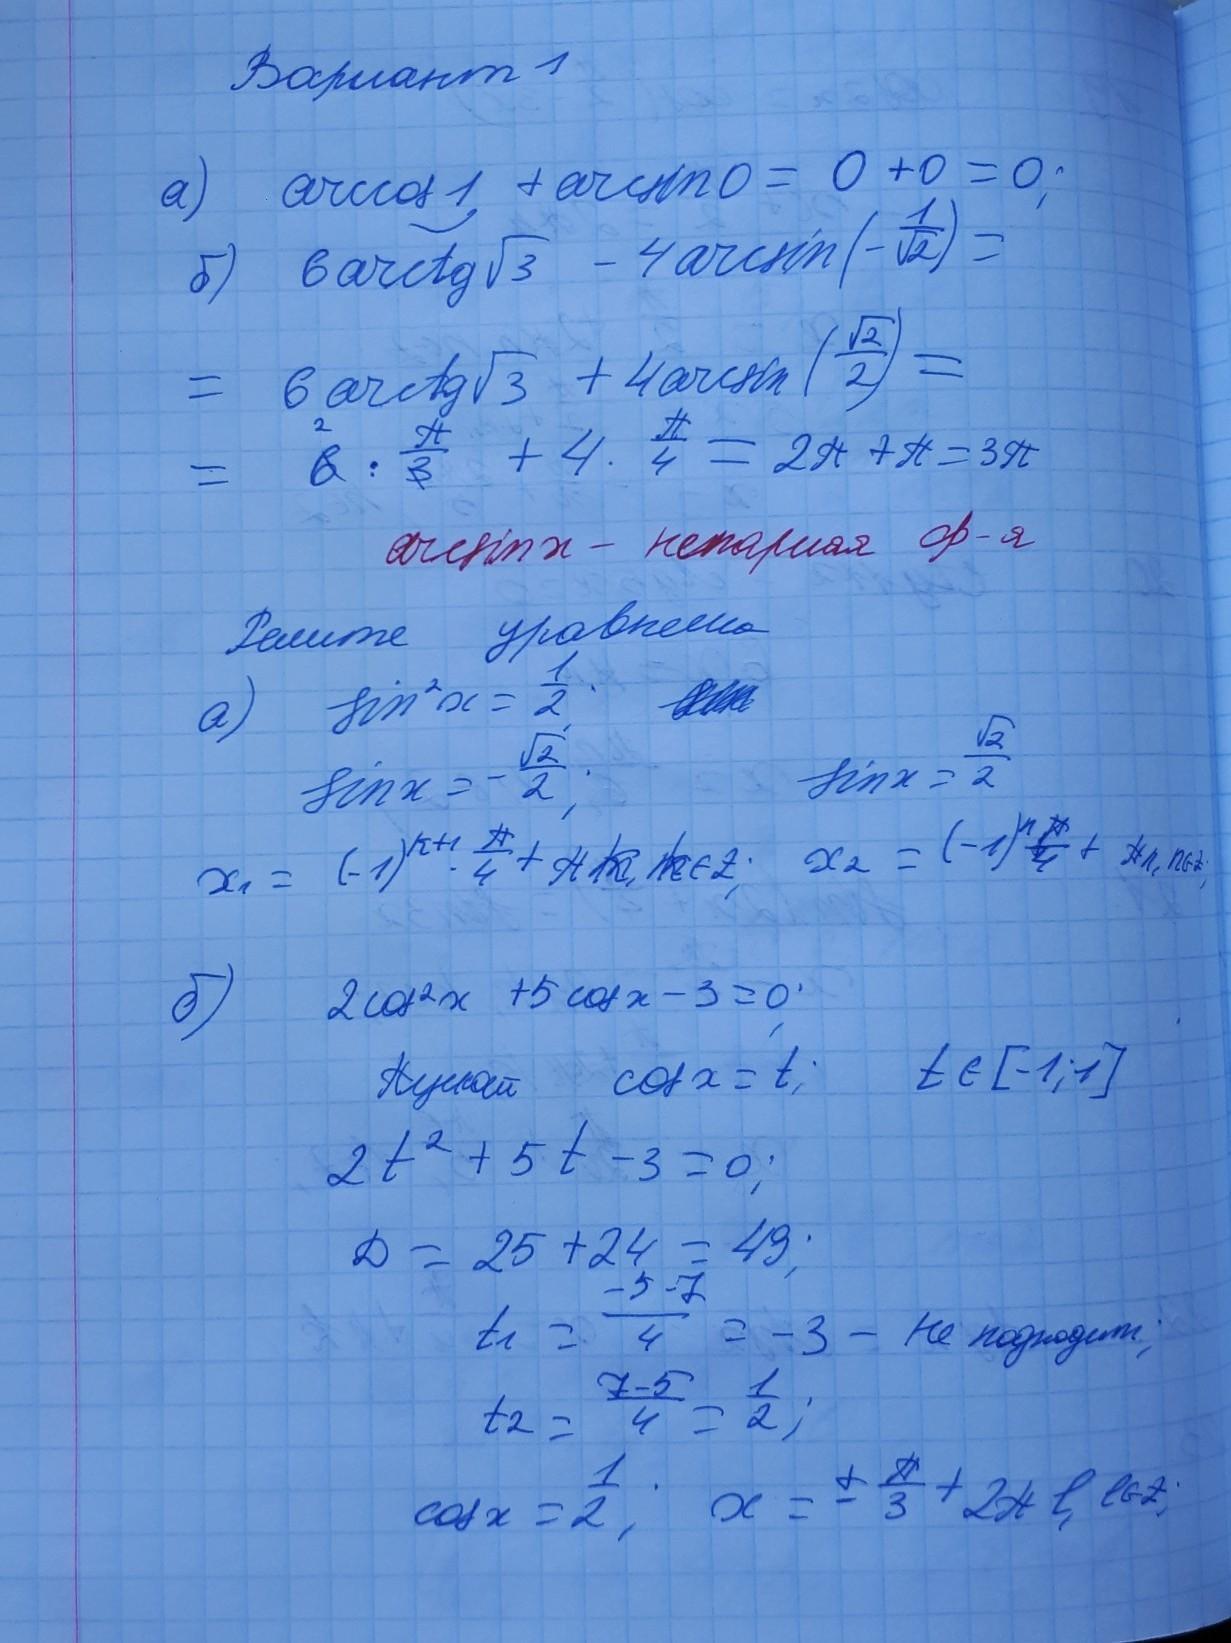 Вариант 1
а) arccos 1 + arcsin 0 = 0 + 0 = 0;
б) 6 arctg √3 - 4 arcsin (- 1/√2) =
= 6 arctg √3 + 4 arcsin (√2/2) =
= 6 · π/3 + 4 · π/4 = 2π + π = 3π
2
arcsin x - непарная ф-я
Решите уравнения
а) sin²x = 1/2;
sin x = - √2/2; sin x = √2/2
x₁ = (-1)ᵏ⁺¹ · π/4 + πk, k ∈ Z; x₂ = (-1)ⁿ π/4 + πn, n ∈ Z;
б) 2cos²x + 5cos x - 3 = 0;
Пускай cos x = t; t ∈ [-1; 1]
2t² + 5t - 3 = 0;
D = 25 + 24 = 49;
t₁ = (-5-7)/4 = -3 - не подходит;
t₂ = (7-5)/4 = 1/2;
cos x = 1/2; x = ± π/3 + 2πl, l ∈ Z;